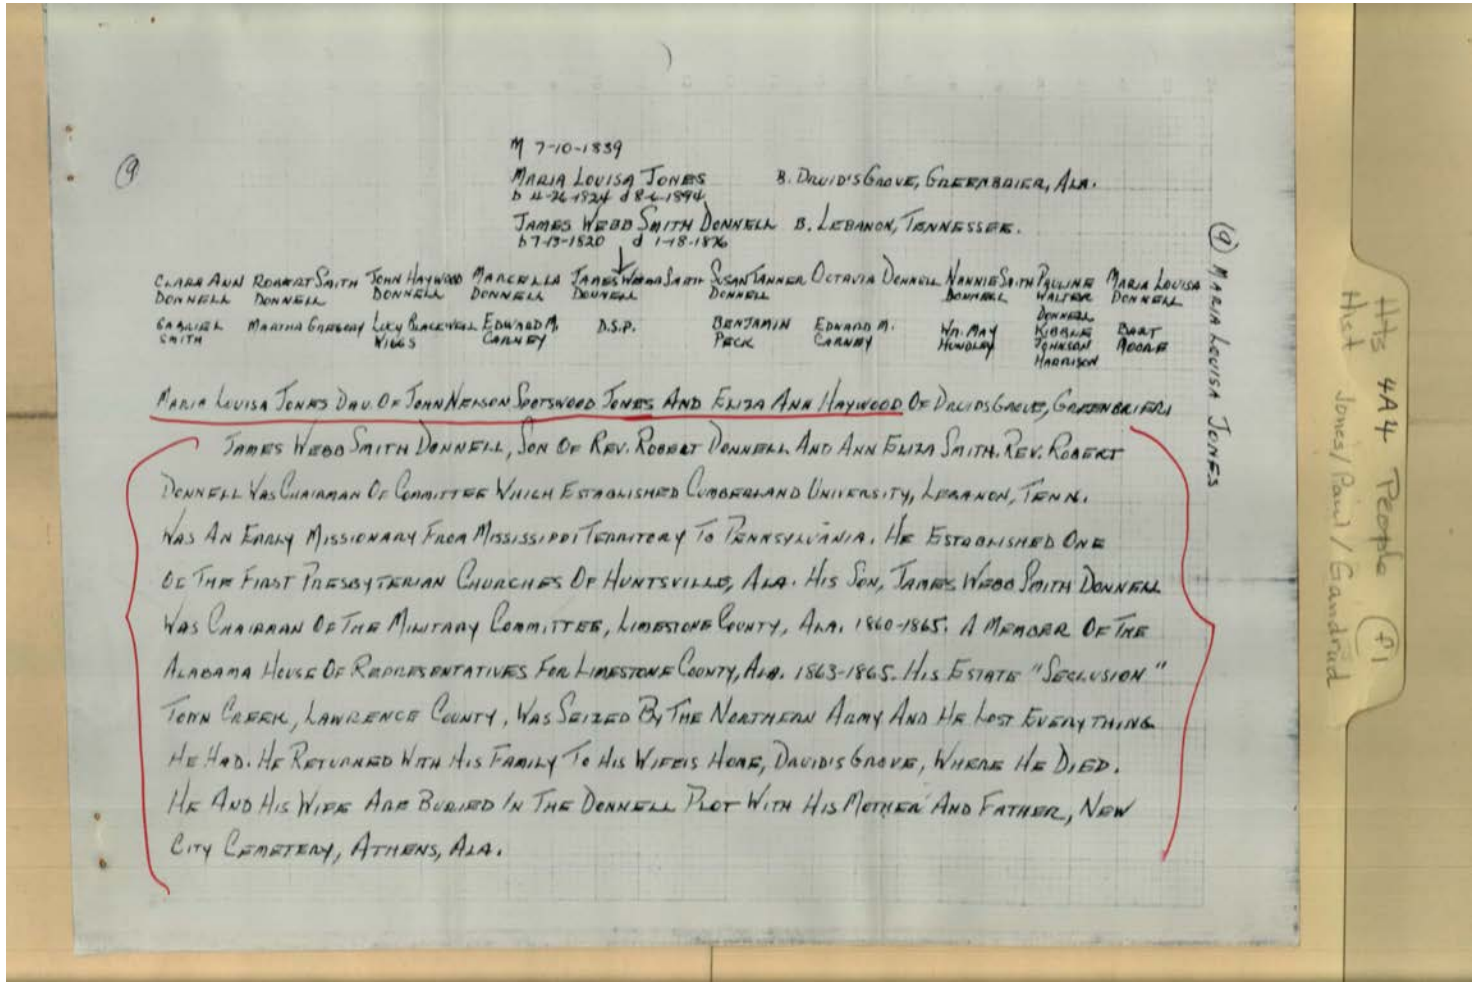 (9)
M 7-10-1839
MARIA LOUISA JONES B. DRUID'S GROVE, GREENBRIER, ALA.
b 4-26-1824 d 8-6-1894
JAMES WEBB SMITH DONNELL B. LEBANON, TENNESSEE.
b 7-13-1820 d 1-18-1876
CLARA ANN ROBERT SMITH JOHN HAYWOOD MARCELLA JAMES WEBB SMITH SUSAN TANNER OCTAVIA DONNELL NANNIE SMITH PAULINE MARIA LOUISA
DONNELL DONNELL DONNELL DONNELL DONNELL DONNELL DONNELL WALTER DONNELL
DONNELL
GABRIEL MARTHA GREGORY LUCY BLACKWELL EDWARD M. D.S.P. BENJAMIN EDWARD M. WM. MAY KIBBLE BART
SMITH WIGGS CARNEY PECK CARNEY HUNDLEY JOHNSON MOORE
HARRISON
MARIA LOUISA JONES DAU. OF JOHN NELSON SPOTSWOOD JONES AND ELIZA ANN HAYWOOD OF DRUIDS GROVE, GREENBRIER,
JAMES WEBB SMITH DONNELL, SON OF REV. ROBERT DONNELL AND ANN ELIZA SMITH. REV. ROBERT
DONNELL WAS CHAIRMAN OF COMMITTEE WHICH ESTABLISHED CUMBERLAND UNIVERSITY, LEBANON, TENN.
WAS AN EARLY MISSIONARY FROM MISSISSIPPI TERRITORY TO PENNSYLVANIA. HE ESTABLISHED ONE
OF THE FIRST PRESBYTERIAN CHURCHES OF HUNTSVILLE, ALA. HIS SON, JAMES WEBB SMITH DONNELL
WAS CHAIRMAN OF THE MILITARY COMMITTEE, LIMESTONE COUNTY, ALA. 1860-1865. A MEMBER OF THE
ALABAMA HOUSE OF REPRESENTATIVES FOR LIMESTONE COUNTY, ALA. 1863-1865. HIS ESTATE "SECLUSION"
TOWN CREEK, LAWRENCE COUNTY, WAS SEIZED BY THE NORTHERN ARMY AND HE LOST EVERYTHING
HE HAD. HE RETURNED WITH HIS FAMILY TO HIS WIFE'S HOME, DRUID'S GROVE, WHERE HE DIED.
HE AND HIS WIFE ARE BURIED IN THE DONNELL PLOT WITH HIS MOTHER AND FATHER, NEW
CITY CEMETERY, ATHENS, ALA.
(9) MARIA LOUISA JONES
Hts 4A4 People (f1
Hist Jones/Paul/Gandrud